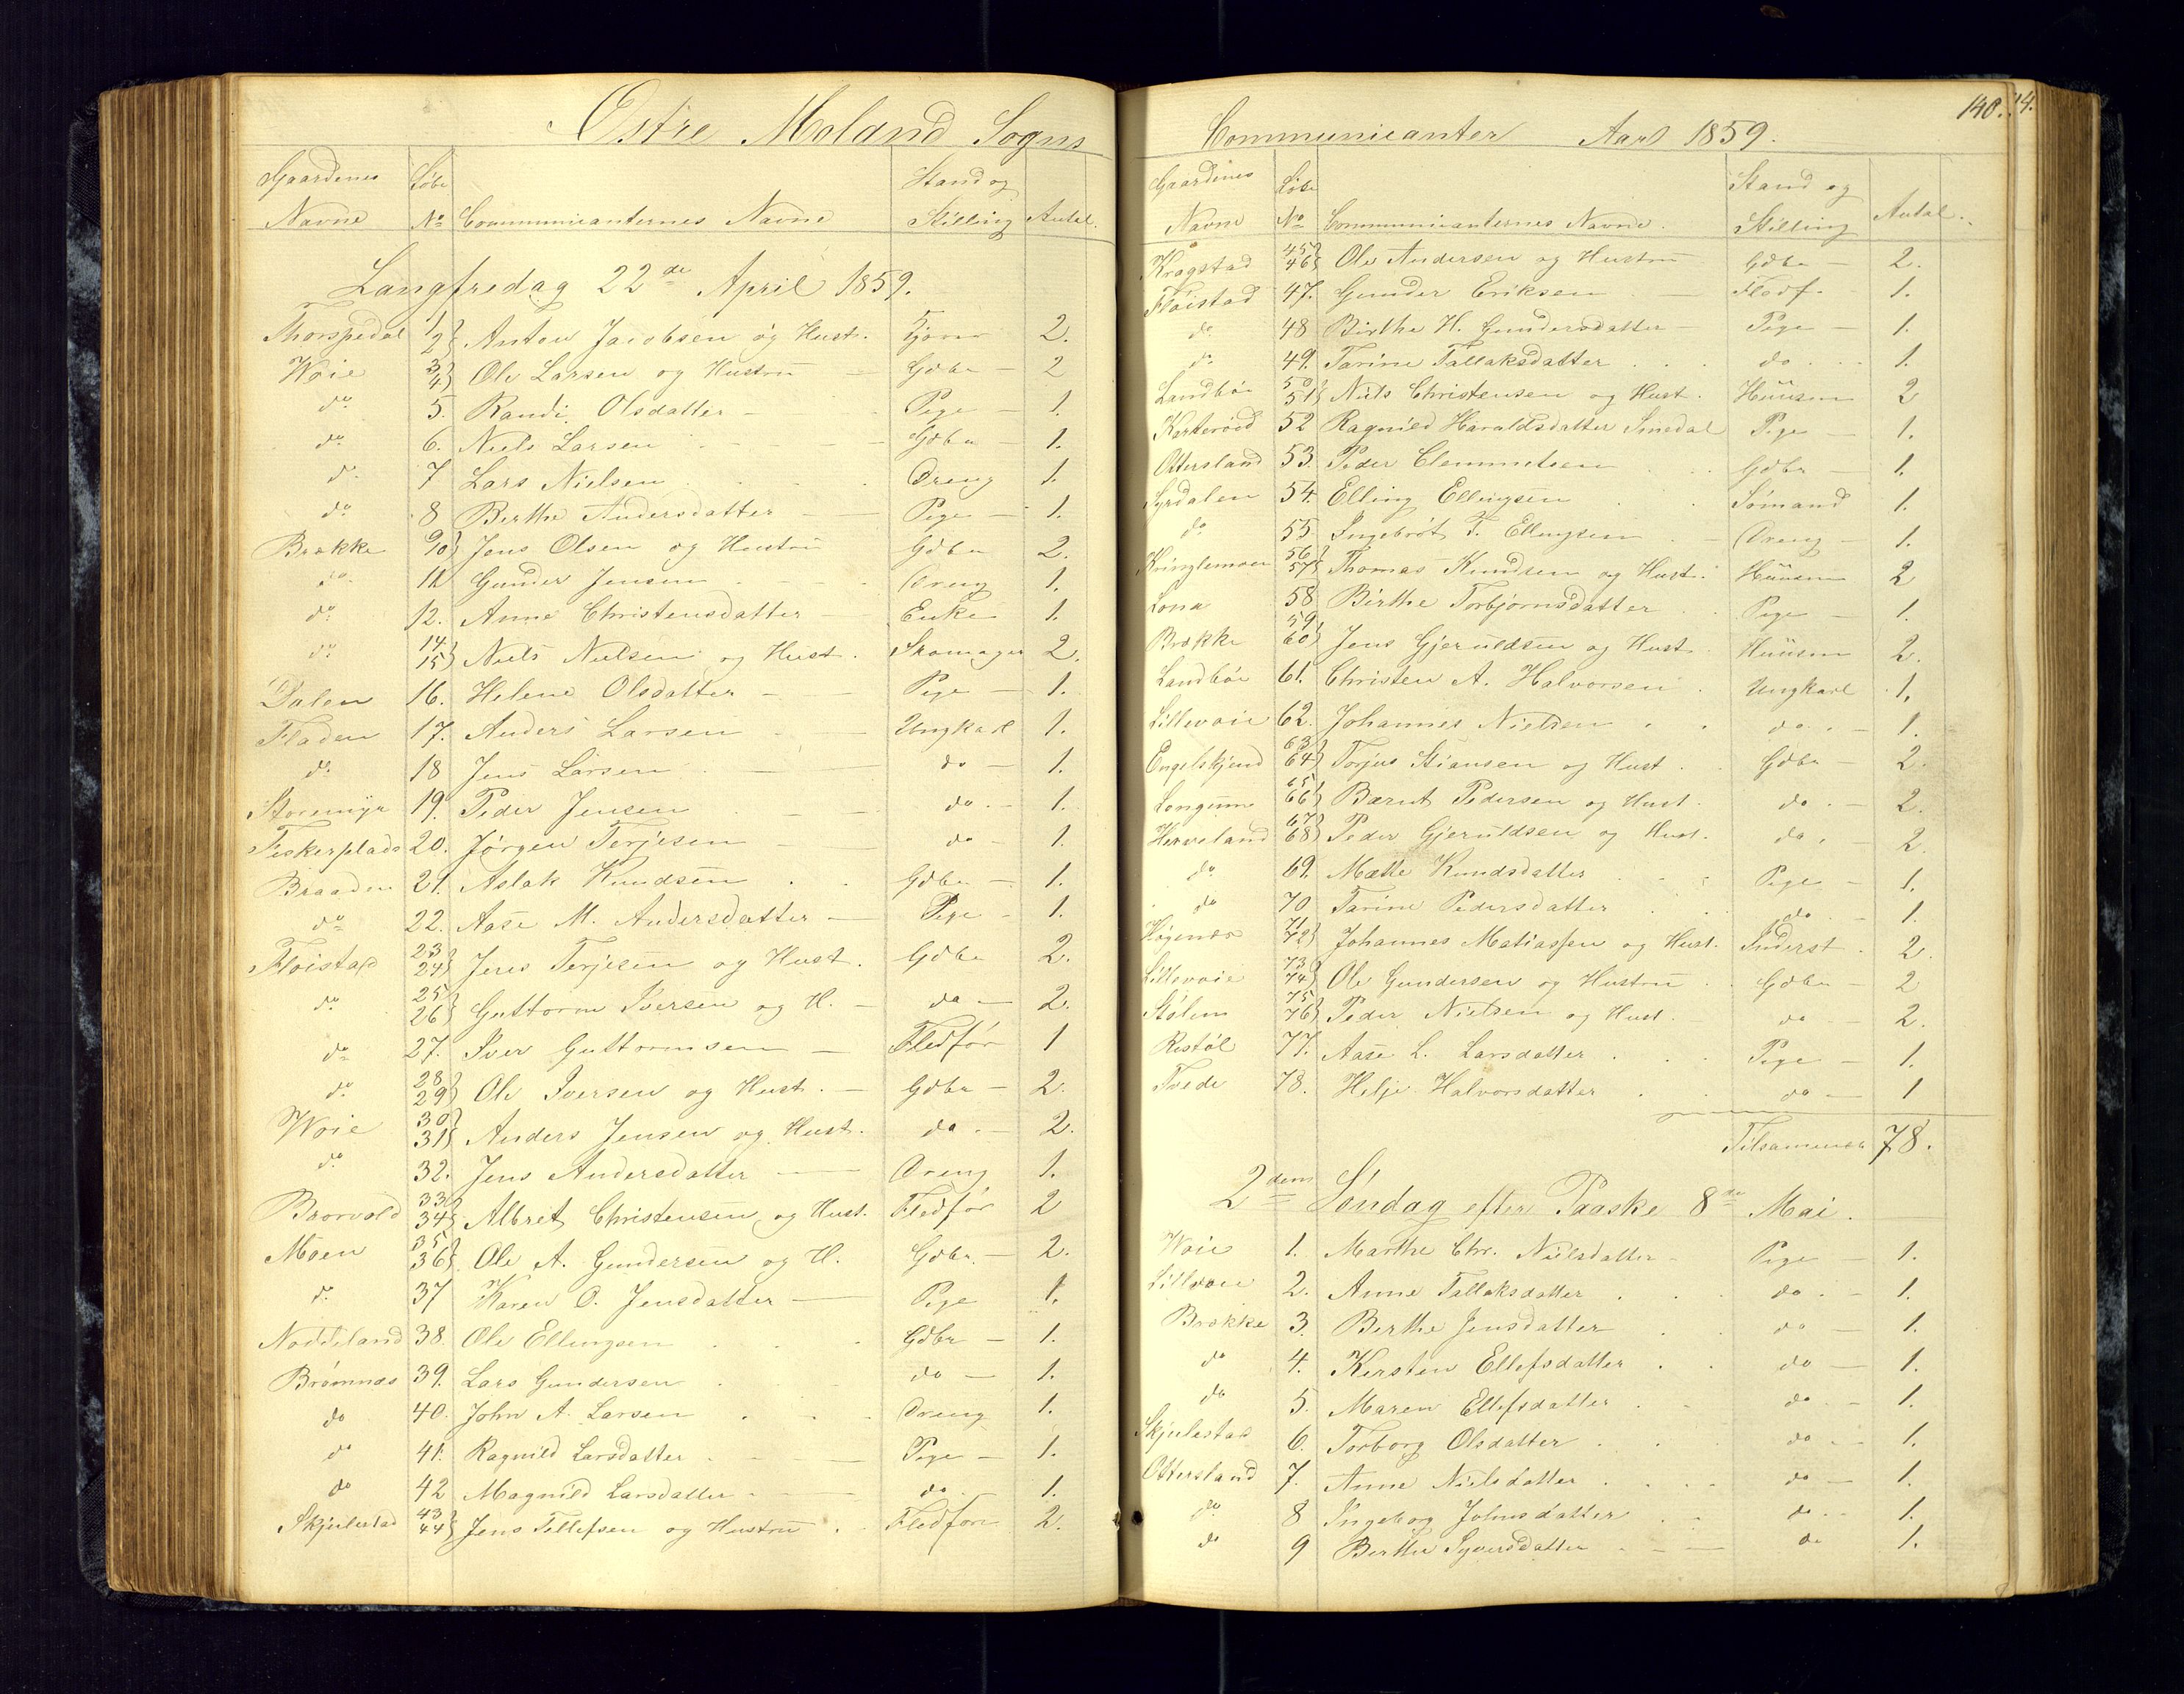 Østre Moland Sogns
Gaardenes Løbe Stand og
Navne No Communicanternes Navne Stilling Antal.
Langfredag 22de April 1859.
Thorspedal 1 2} Anton Jacobsen og Hust. 2.
Woie 3 4} Ole Larsen og Hustru Gdbr 2
do 5. Randi Olsdatter Pige 1.
do 6. Niels Larsen Gdbr 1.
do 7 Lars Nielsen Dreng 1.
do 8 Berthe Andersdatter Pige 1.
Brække 9 10} Jens Olsen og Hustru Gdbr 2.
do 11 Gunder Jensen Dreng 1.
do 12. Anne Christensdatter Enke 1.
do 14. 15} Niels Nielsen og Hust. Skomager 2.
Dalen 16. Helene Olsdatter Pige 1.
Fladen 17. Anders Larsen Ungkarl 1.
do 18 Jens Larsen do 1.
Storemyr 19. Peder Jensen do 1.
Fiskerplads 20. Jørgen Terjesen do 1.
Braaden 21. Aslak Knudsen Gdbr 1.
do 22. Aase M. Andersdatter Pige 1.
Fløistad 23 24} Jens Terjesen og Hust. Gdbr 2.
do 25 26} Guttorm Iversen og H. do 2.
do 27. Iver Guttormsen Fledfør 1
do 28 29} Ole Iversen og Hust. Gdbr 2.
Woie 30 31} Anders Jensen og Hust. do 2.
do 32. Jens Andersdatter Dreng 1.
Brorvold 33 34} Albret Christensen og Hust. Fledfør 2
Moen 35 36} Ole A. Gundersen og H. Gdbr. 2.
do 37 Karen O. Jensdatter Pige 1.
Noddeland 38. Ole Ellingsen Gdbr 1.
Brømnæs 39. Lars Gundersen do 1.
do 40. John A. Larsen Dreng 1.
do 41. Ragnild Larsdatter Pige 1.
do 42 Magnild Larsdatter do 1.
Skjulestad 43 44} Jens Tellefsen og Hustru Fledfør 2.
Communicanter Aar 1859. 140. 14.
Gaardenes Løbe Stand og
Navne No Communicanternes Navne. Stilling Antal.
Kragstad 45 46} Ole Andersen og Hustru Gdbr 2.
Fløistad 47. Gunder Eriksen Fledf. 1.
do 48 Birthe H. Gundersdatter Pige 1.
do 49. Tarine Tallaksdatter do 1.
Landbøe 50 51} Niels Christensen og Hust. Huusm 2
52 Ragnild Haraldsdatter Smedal Pige 1.
Ottersland 53. Peder Clemmetsen Gdbr 1.
Syrdalen 54. Elling Ellingsen Sømand 1.
do 55 Ingebrøt T. Ellingsen Dreng 1.
Kringlemoen 56 57} Thomas Knudsen og Hust. Huusm 2
Lona 58 Birthe Torbjørnsdatter Pige 1.
Brække 59 60} Jens Gjeruldsen og Hust Huusm 2.
Landbøe 61. Christen A. Halvorsen Ungkarl 1.
Lillevoie 62. Johannes Nielsen do. 1.
Engelskjend 63 64} Torjus Stiansen og Hust. Gdbr 2.
Longume 65 66} Bærut Pedersen og Hust. do. 2.
Herveland 67 68} Peder Gjeruldsen og Hust. do. 2.
do 69. Mætte Knudsdatter Pige 1.
do 70 Tarine Pedersdatter do 1.
Høgenæs 71 72} Johannes Matiassen og Hust. Inderst. 2.
Lillevoie 73 74} Ole Gundersen og Hustru Gdbr 2
Stølen 75 76} Peder Nielsen og Hust. do 2.
Restøl 77. Aase L. Larsdatter Pige 1.
Tvede 78. Helje Halvorsdatter do 1
Tilsammen 78.
2den Søndag efter Paaske 8de Mai.
Woie 1. Marthe Chr. Nielsdatter Pige 1.
Lillevoie 2. Anne Tallaksdatter do. 1.
Brække 3. Berthe Jensdatter do 1.
do 4. Kersten Ellefsdatter do 1.
do 5. Maren Ellefsdatter do. 1.
Skjulestad 6. Torborg Olsdatter do. 1.
Ottersland 7. Anne Nielsdatter do 1.
do 8 Ingeborg Johnsdatter do. 1.
do 9 Berthe Syversdatter do 1.